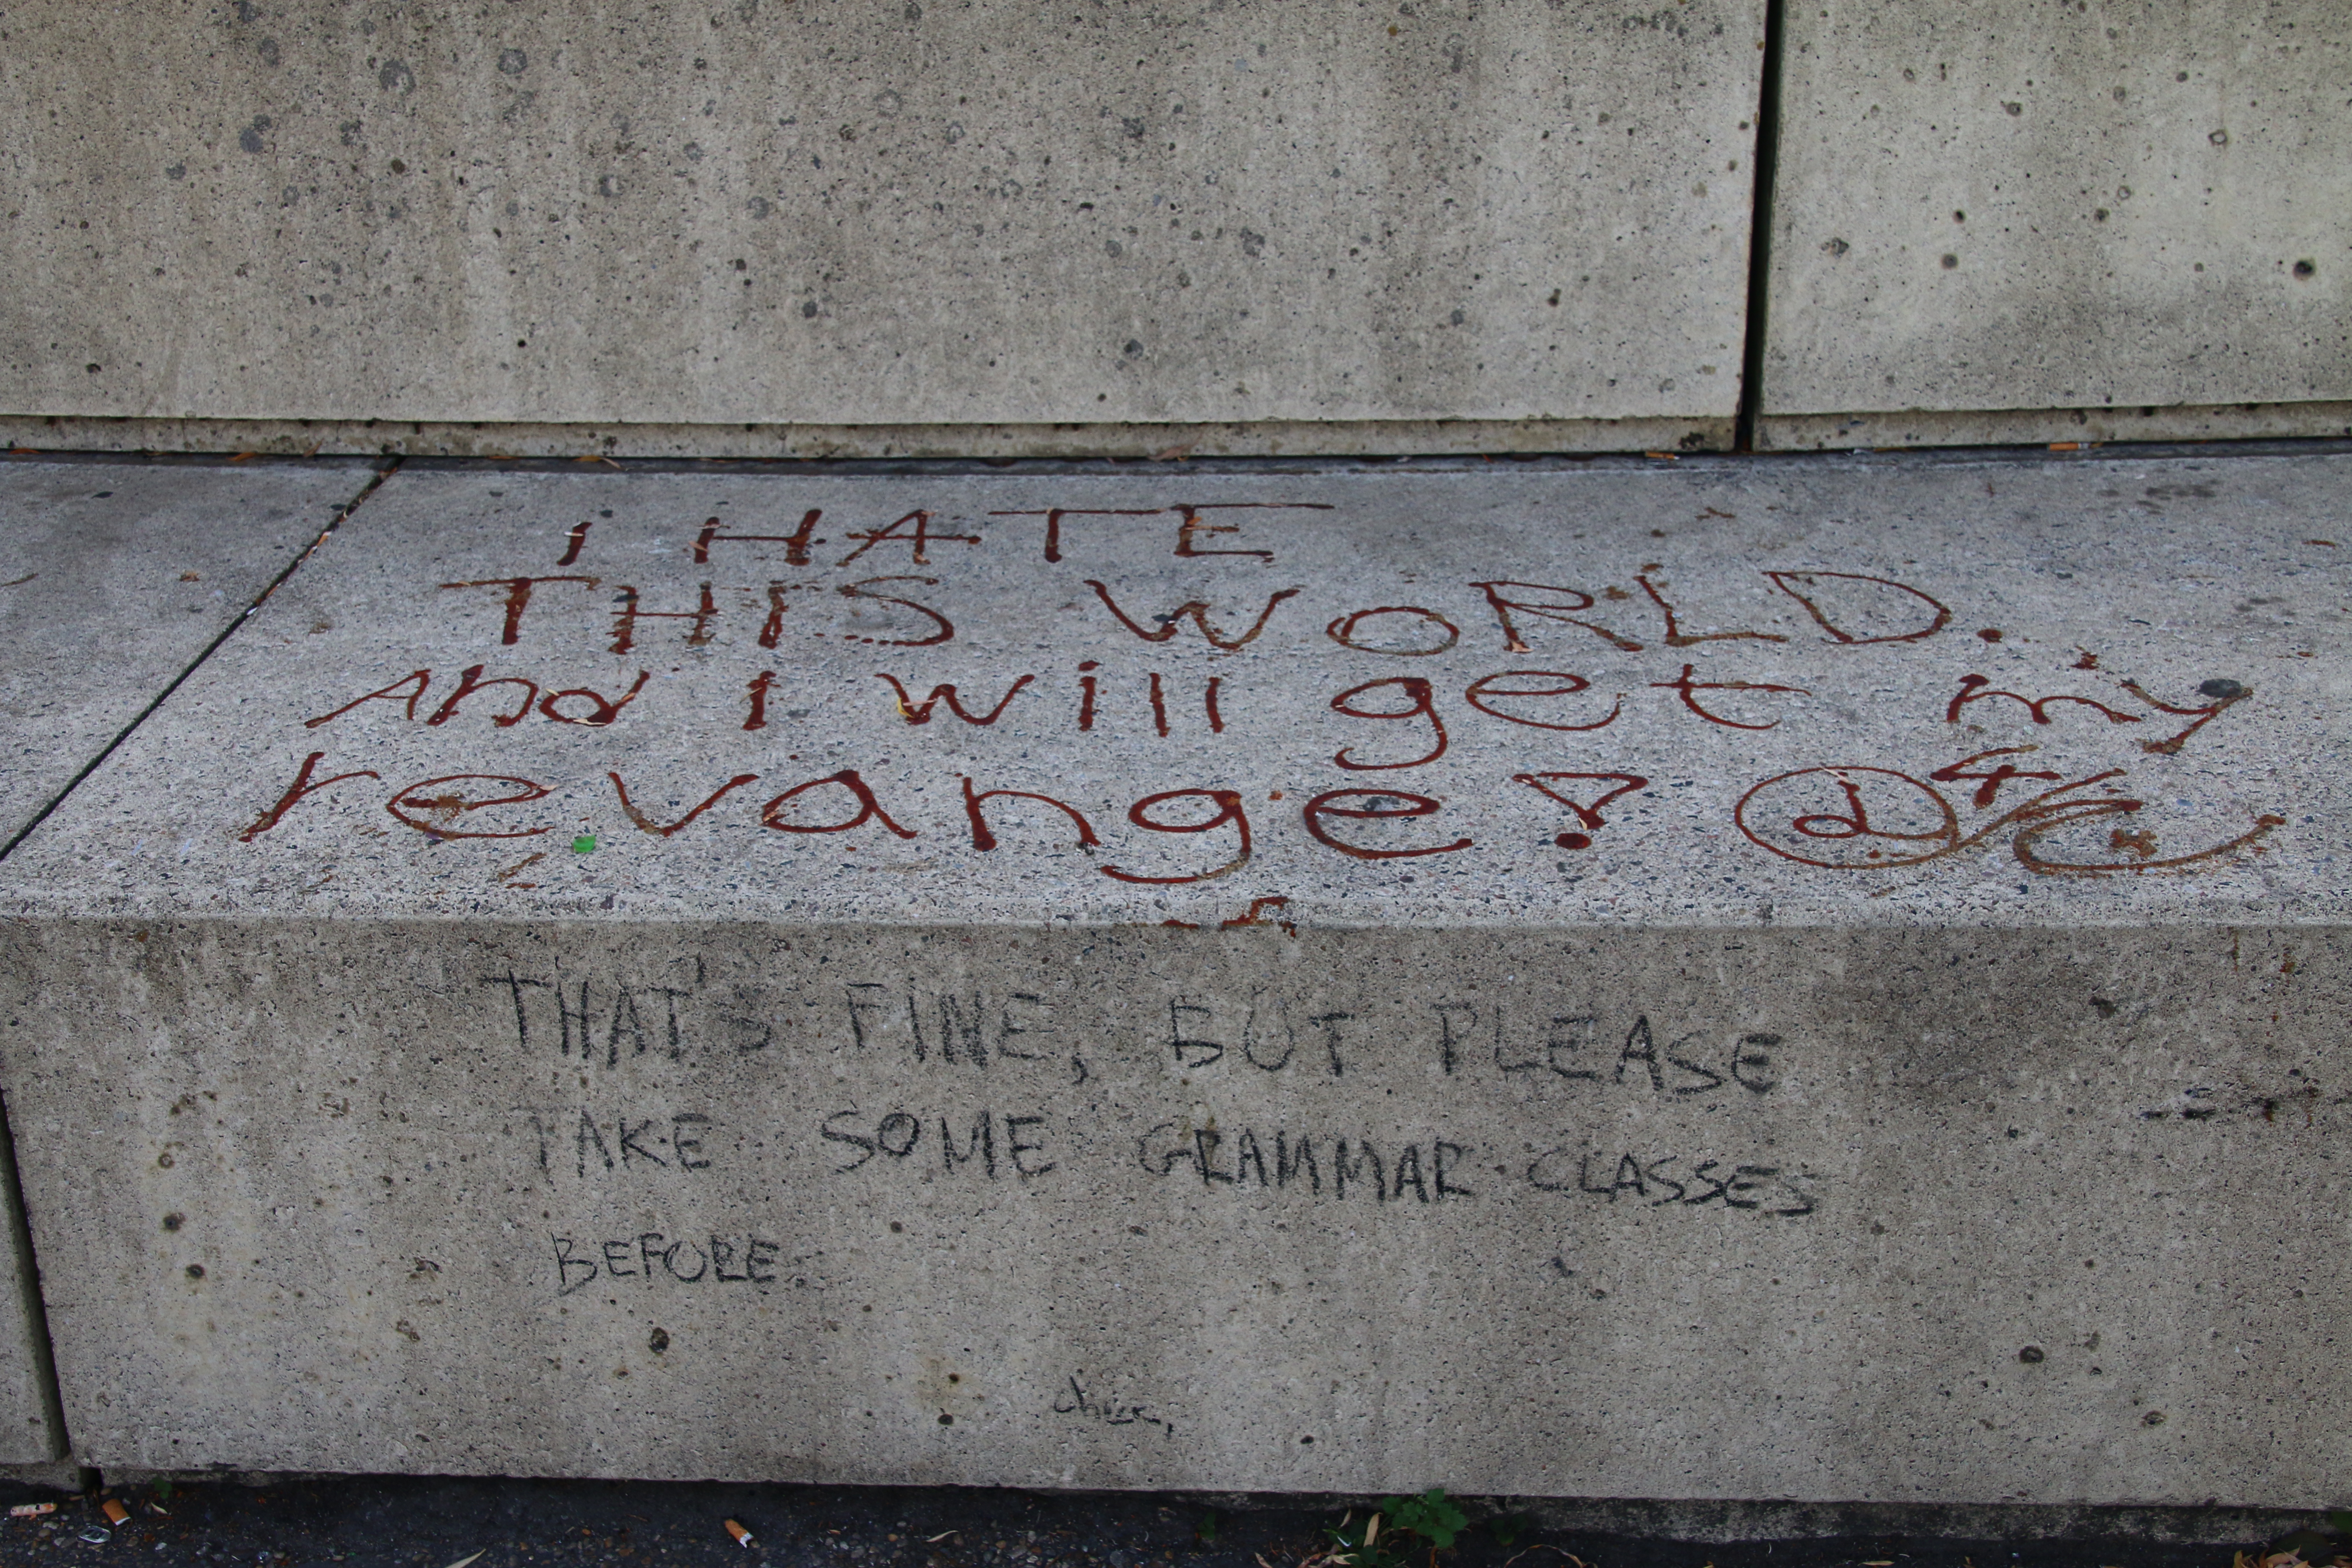 i HATE
THIS WORLD.
And i will get my
revange!
THAT'S FINE, BUT PLEASE
TAKE SOME GRAMMAR CLASSES
BEFORE.